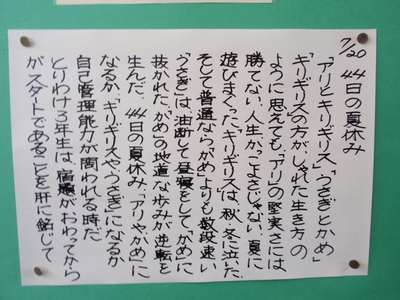 7/20 44日の夏休み
「アリとキリギリス」「うさぎとかめ」
「キリギリス」の方が、しゃれた生き方の
ように思えても、「アリ」の堅実さには
勝てない。人生、かっこよさじゃない。夏に
遊びまくった「キリギリス」は、秋、冬に泣いた。
そして普通なら「かめ」よりも数段速い
「うさぎ」は、油断して昼寝をして、かめに
抜かれた。「かめ」の地道な歩みが逆転を
生んだ。44日の夏休み、「アリやかめ」に
なるか、「キリギリスやうさぎ」になるか
自己管理能力が問われる時だ
とりわけ3年生は、宿題がおわってから
がスタートであることを肝に銘じて